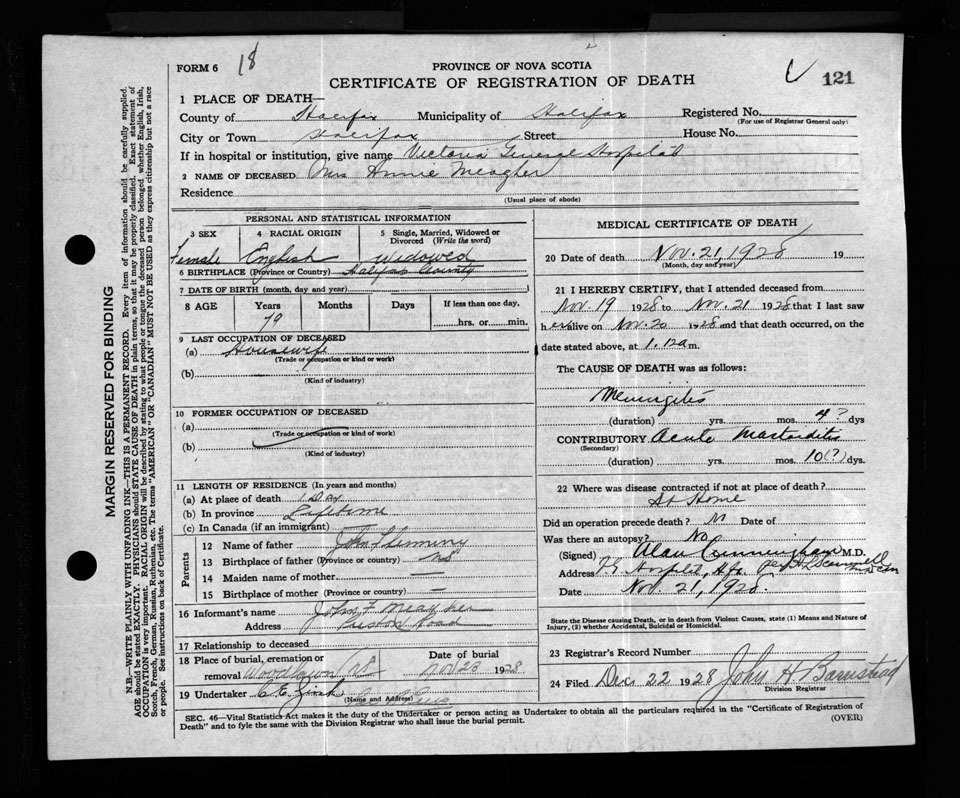 18
FORM 6
PROVINCE OF NOVA SCOTIA
CERTIFICATE OF REGISTRATION OF DEATH
121
1 PLACE OF DEATH—
County of Halifax Municipality of Halifax Registered No.
(For use of Registrar General only)
City or Town Halifax Street House No.
If in hospital or institution, give name Victoria General Hospital
2 NAME OF DECEASED Mrs Annie Meagher
Residence
(Usual place of abode)
PERSONAL AND STATISTICAL INFORMATION
3 SEX 4 RACIAL ORIGIN 5 Single, Married, Widowed or Divorced (Write the word)
Female English Widowed
6 BIRTHPLACE (Province or Country) Halifax County
7 DATE OF BIRTH (month, day and year)
8 AGE Years Months Days If less than one day,
79 hrs. or min.
9 LAST OCCUPATION OF DECEASED
(a) Housewife
(Trade or occupation or kind or work)
(b)
(Kind of industry)
10 FORMER OCCUPATION OF DECEASED
(a)
(Trade or occupation or kind of work)
(b)
(Kind of industry)
11 LENGTH OF RESIDENCE (In years and months)
(a) At place of death 1 Day
(b) In province Lifetime
(c) In Canada (if an immigrant)
Parents
12 Name of father John Fleming
13 Birthplace of father (Province or country) NS
14 Maiden name of mother —
15 Birthplace of mother (Province or country) —
16 Informant's name John F Meagher
Address Preston Road
17 Relationship to deceased
18 Place of burial, cremation or removal Woodlawn NS Date of burial Nov 23 1928
19 Undertaker C E Zink
(Name and Address)
MEDICAL CERTIFICATE OF DEATH
20 Date of death Nov. 21, 1928 19
(Month, day and year)
21 I HEREBY CERTIFY, that I attended deceased from
Nov 19 1928 to Nov 21 1928 that I last saw
her alive on Nov 20 1928 and that death occurred, on the
date stated above, at 1.12 a m.
The CAUSE OF DEATH was as follows:
Meningitis
(duration) yrs. mos. 4? dys
CONTRIBUTORY Acute Mastoiditis
(Secondary)
(duration) yrs. mos. 10(?) dys.
22 Where was disease contracted if not at place of death?
At Home
Did an operation precede death? Date of
Was there an autopsy? No
(Signed) Alan Cunningham M.D.
Address Hospital, Hfx
Date Nov. 21, 1928.
State the Disease causing Death, or in death from Violent Causes, state (1) Means and Nature of
Injury, (2) whether Accidental, Suicidal or Homicidal.
23 Registrar's Record Number
24 Filed Dec 22 1928 John H Barnstead
Division Registrar
SEC. 46—Vital Statistics Act makes it the duty of the Undertaker or person acting as Undertaker to obtain all the particulars required in the "Certificate of Registration of
Death" and to fyle the same with the Division Registrar who shall issue the burial permit.
(OVER)
MARGIN RESERVED FOR BINDING
N.B.—WRITE PLAINLY WITH UNFADING INK—THIS IS A PERMANENT RECORD. Every item of information should be carefully supplied.
AGE should be stated EXACTLY. PHYSICIANS should STATE CAUSE OF DEATH in plain terms, so that it may be properly classified. Exact statement of
OCCUPATION is very important. RACIAL ORIGIN will be described by stating to what people or tongue the deceased person belonged whether English, Irish,
Scotch, French, German, Russian, Ruthenian, etc. The terms "AMERICAN" OR "CANADIAN" MUST NOT BE USED as they express citizenship but not a race
or people. See instructions on back of Certificate.